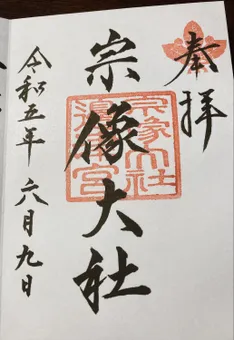 奉拝
宗像大社
宗像大社
邊津宮
令和五年 六月九日